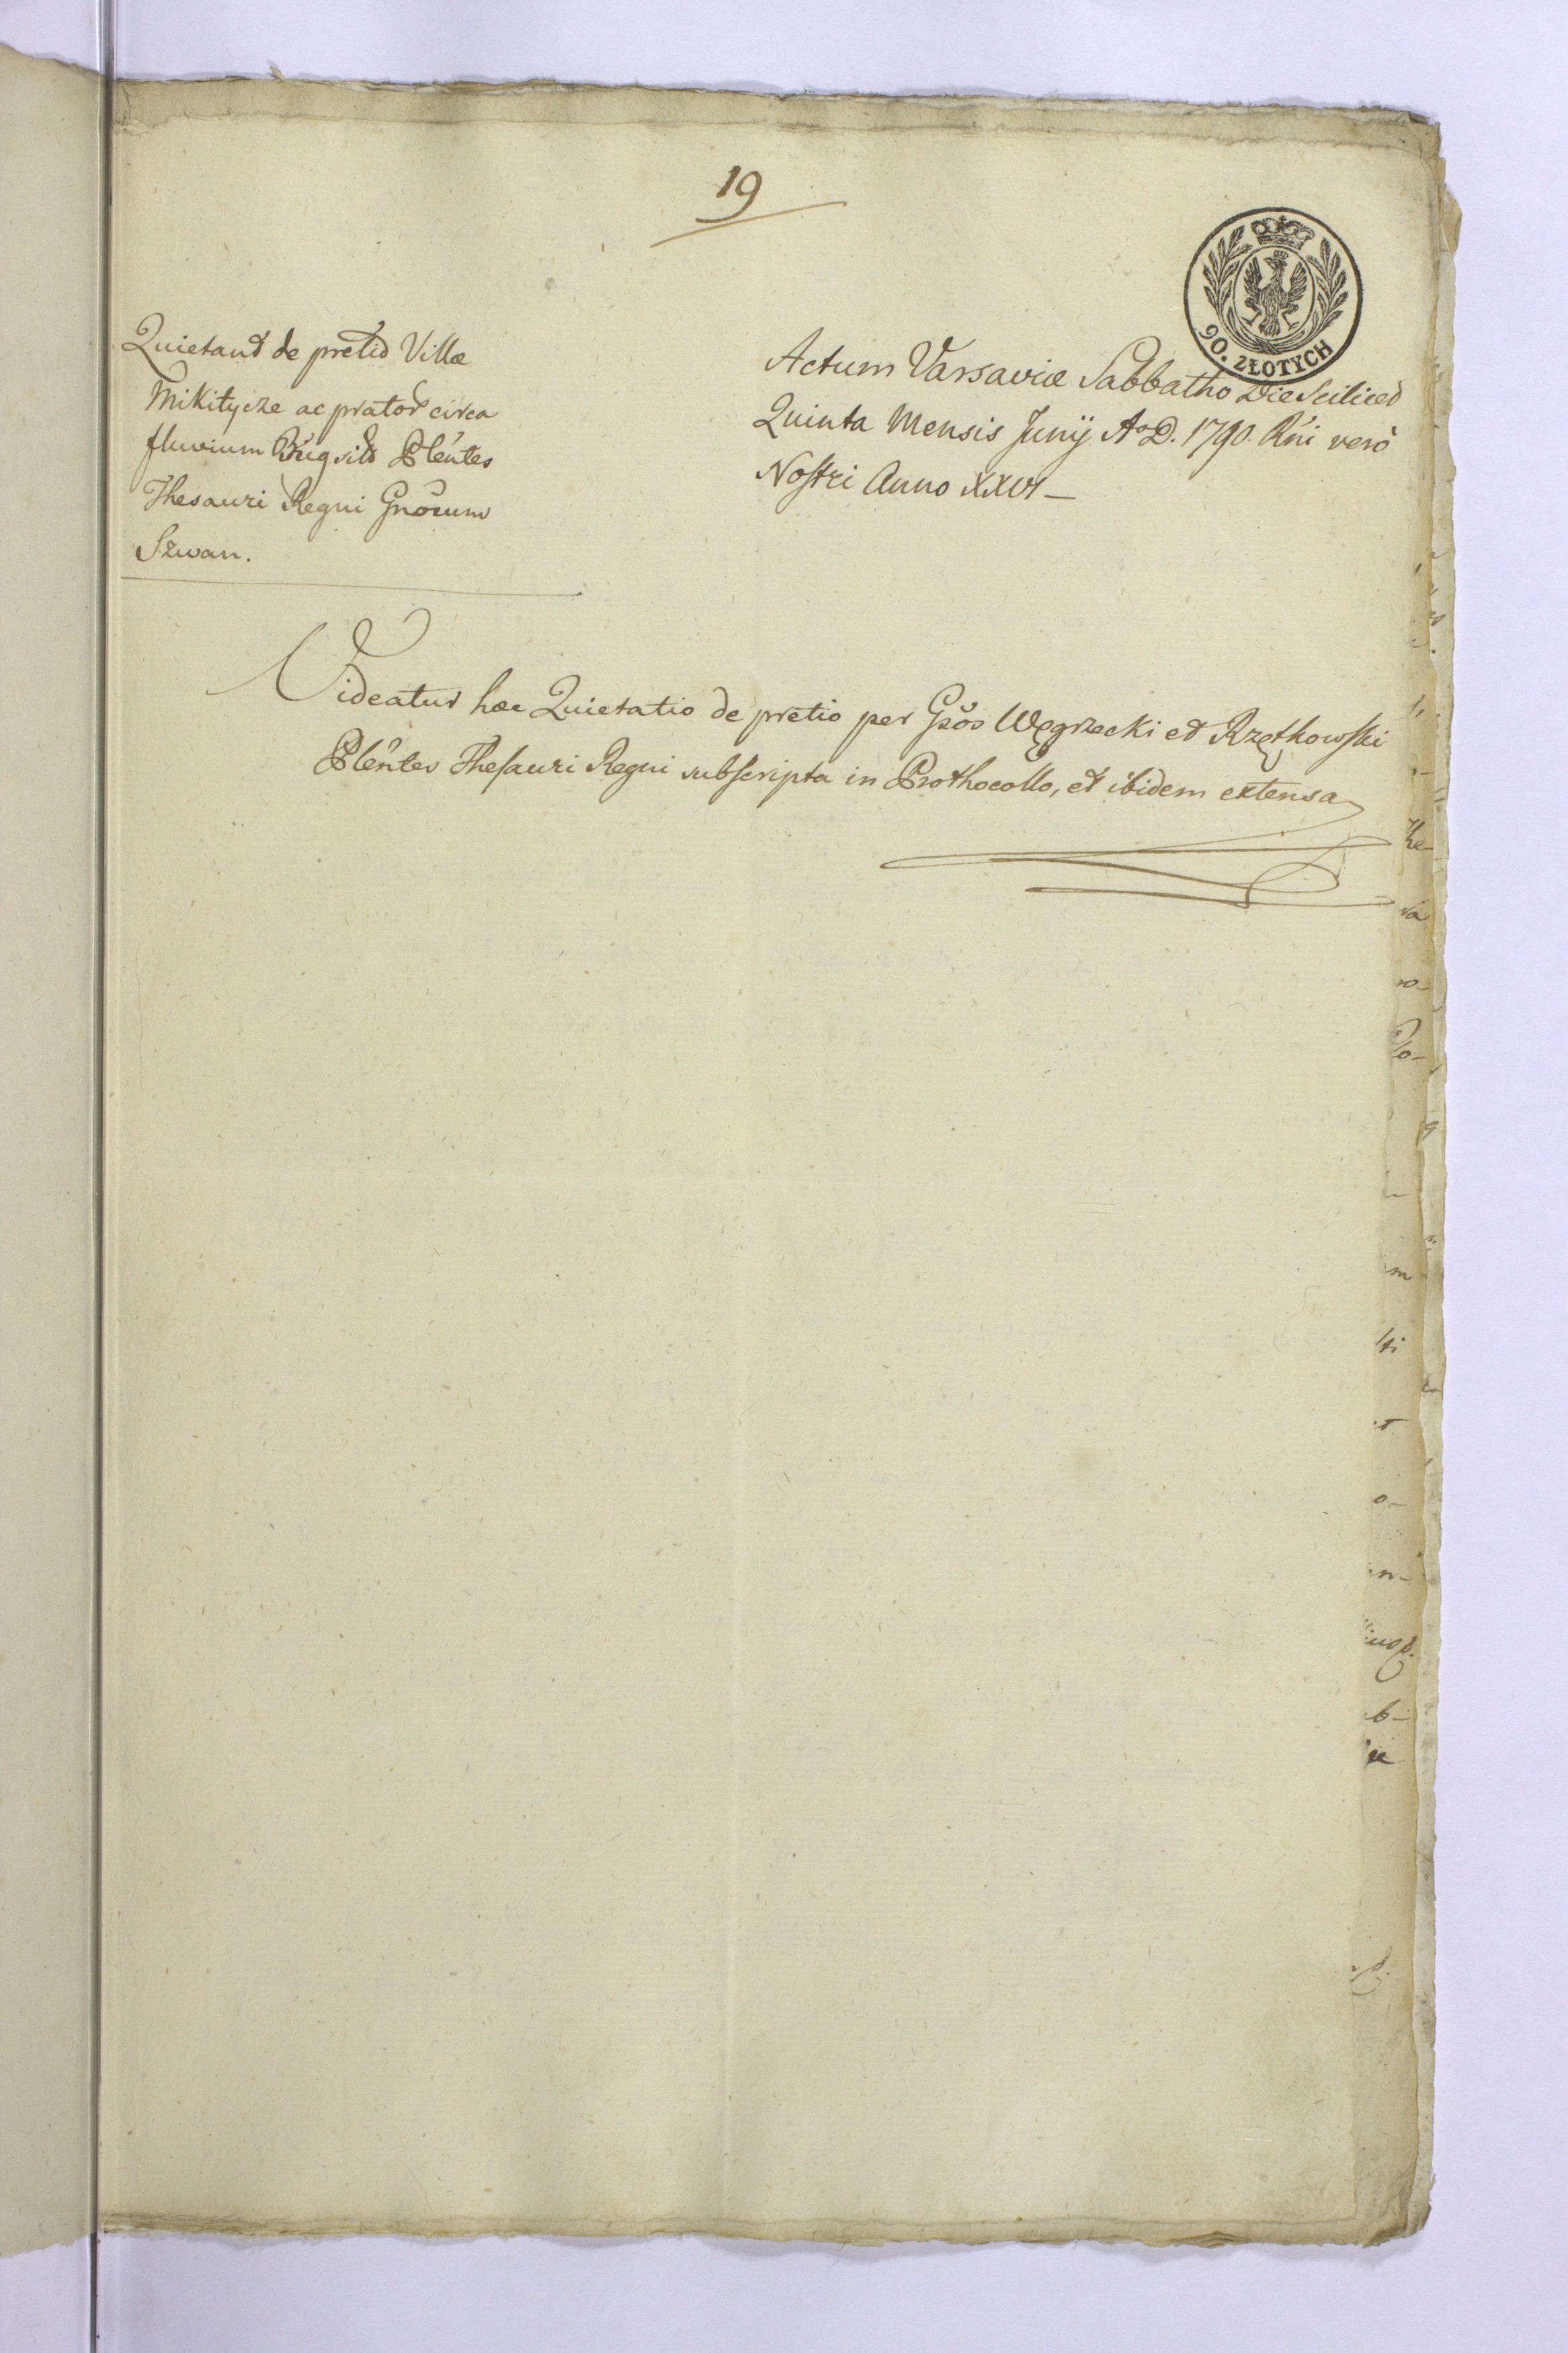 19
90. ZŁOTYCH
Quietant de pretio Villæ
Mikitycze ac prator circa
fluvium Bug sit Plêntes
Thesauri Regni Gnôrum
Szwan.
Actum Varsaviæ Sabbatho Die Scilicet
Quinta Mensis Junij A͠o D. 1790. Rńi verò
Nostri Anno XXVI —
Videatur hæc Quietatio de pretio per Gsôs Węgrzecki et Rzętkowski
Plêntes Thesauri Regni subscripta in Prothocollo, et ibidem extensa